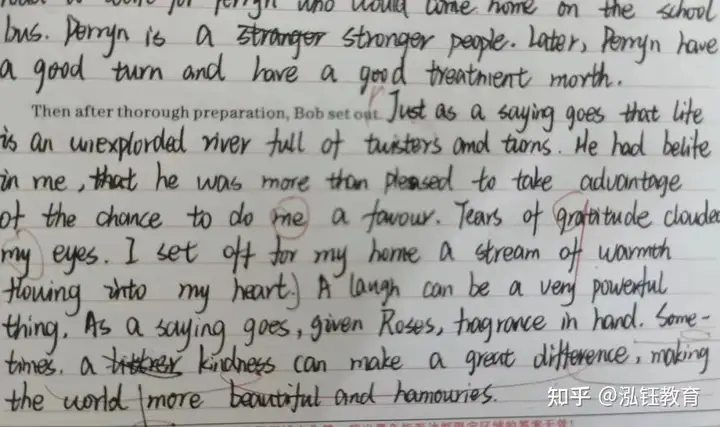 for Perryn who would come home on the school
bus. Perryn is a stranger stronger people. Later, Perryn have
a good turn and have a good treatment morth.
Then after thorough preparation, Bob set out. Just as a saying goes that life
is an unexplorded river full of twisters and turns. He had belife
in me, that he was more than pleased to take advantage
of the chance to do me a favour. Tears of gratitude clouded
my eyes. I set off for my home a stream of warmth
flowing into my heart.) A laugh can be a very powerful
thing. As a saying goes, given Roses, fragrance in hand. Some-
times. a kindness can make a great difference, making
the world more beautiful and hamouries.
知乎 @泓钰教育